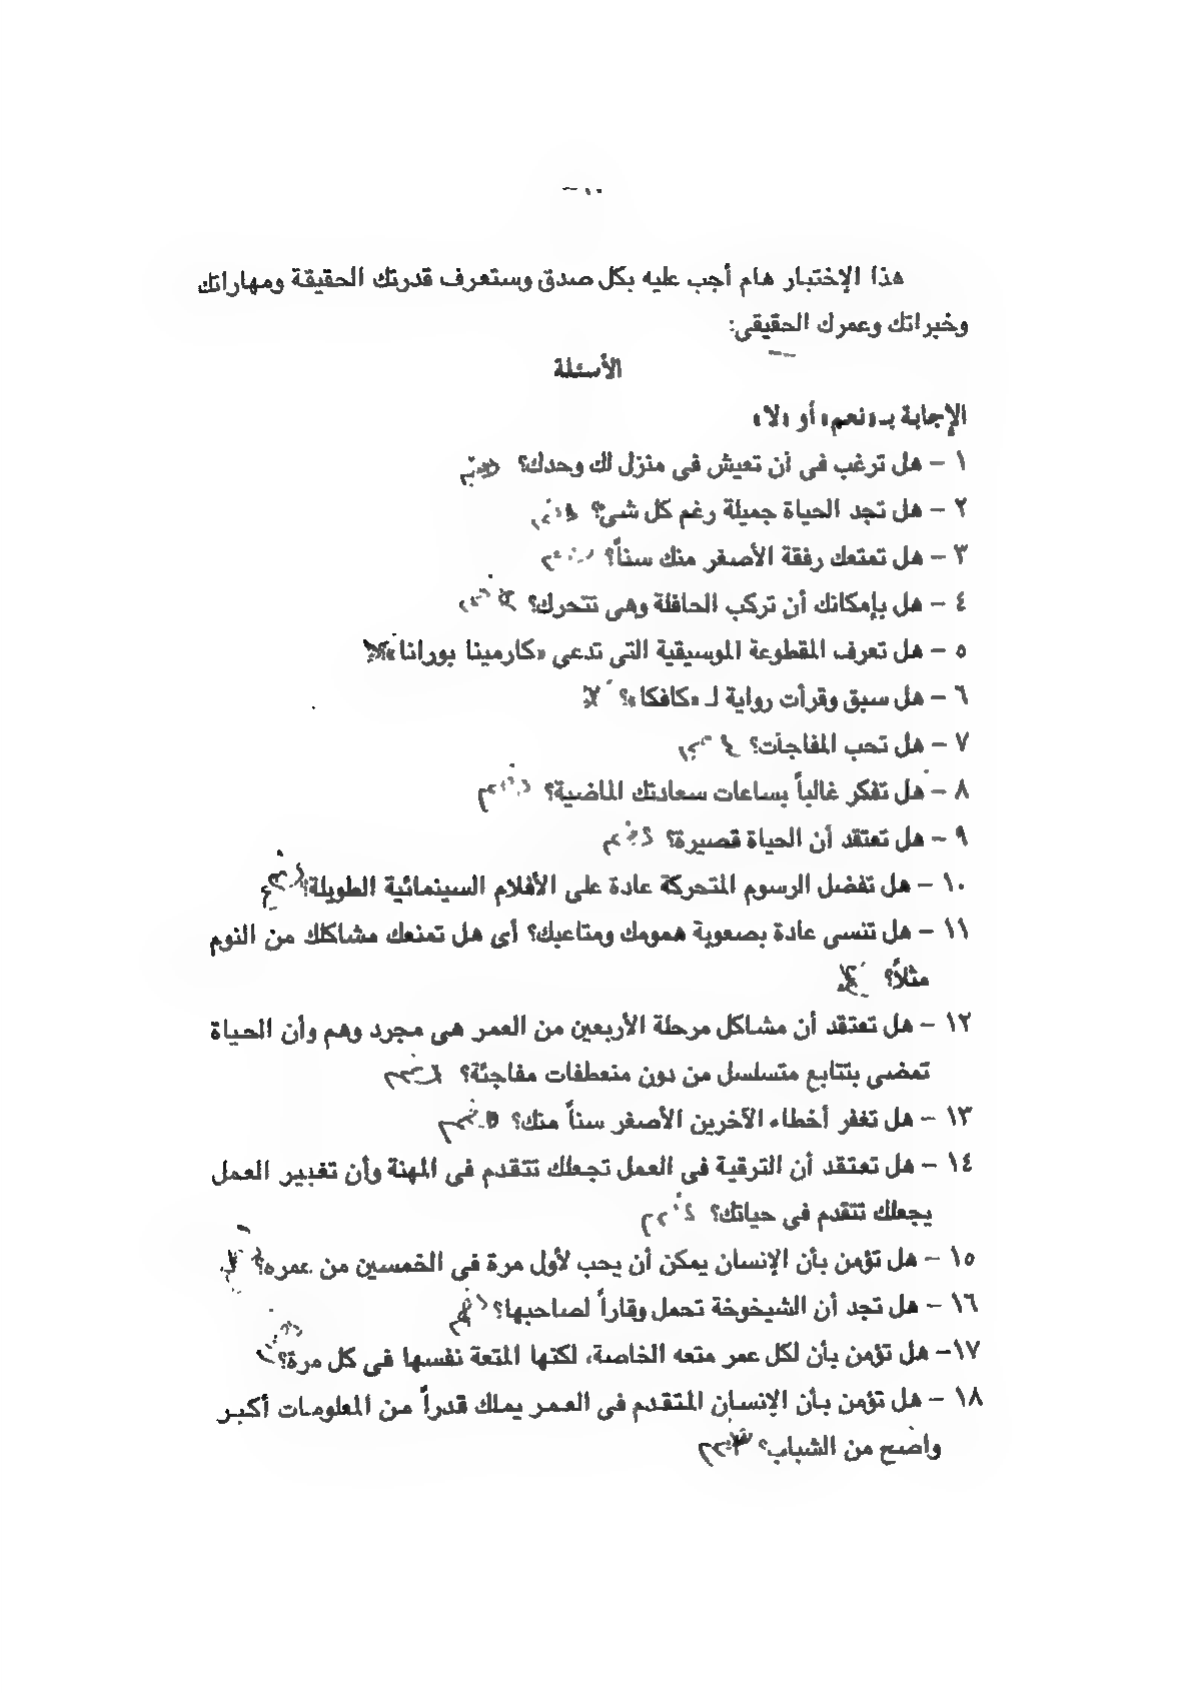 هذا الإختبار هام أجب عليه بكل صدق وستعرف قدرتك الحقيقة ومهاراتك
وخبراتك وعمرك الحقيقي:
الأسئلة
الإجابة بـ «نعم» أو «لا»
١ – هل ترغب فى أن تعيش فى منزل لك وحدك؟ نعم
٢ – هل تجد الحياة جميلة رغم كل شئ؟
٣ – هل تمتعك رفقة الأصغر منك سناً؟
٤ – هل بإمكانك أن تركب الحافلة وهى تتحرك؟
٥ – هل تعرف المقطوعة الموسيقية التى تدعي «كارمينا بورانا» لا
٦ – هل سبق وقرأت رواية لـ «كافكا»؟ لا
٧ – هل تحب المفاجآت؟
٨ – هل تفكر غالباً بساعات سعادتك الماضية؟
٩ – هل تعتقد أن الحياة قصيرة؟
١٠ – هل تفضل الرسوم المتحركة عادة على الأفلام السينمائية الطويلة؟
١١ – هل تنسى عادة بصعوبة همومك ومتاعبك؟ أى هل تمنعك مشاكلك من النوم
مثلاً؟
١٢ – هل تعتقد أن مشاكل مرحلة الأربعين من العمر هى مجرد وهم وأن الحياة
تمضى بتتابع متسلسل من دون منعطفات مفاجئة؟
١٣ – هل تغفر أخطاء الآخرين الأصغر سناً منك؟
١٤ – هل تعتقد أن الترقية فى العمل تجعلك تتقدم فى المهنة وأن تغيير العمل
يجعلك تتقدم فى حياتك؟
١٥ – هل تؤمن بأن الإنسان يمكن أن يحب لأول مرة فى الخمسين من عمره؟
١٦ – هل تجد أن الشيخوخة تحمل وقاراً لصاحبها؟
١٧– هل تؤمن بأن لكل عمر متعه الخاصة، لكنها المتعة نفسها فى كل مرة؟
١٨ – هل تؤمن بأن الإنسان المتقدم فى العمر يملك قدراً من المعلومات أكبر
واضح من الشباب؟